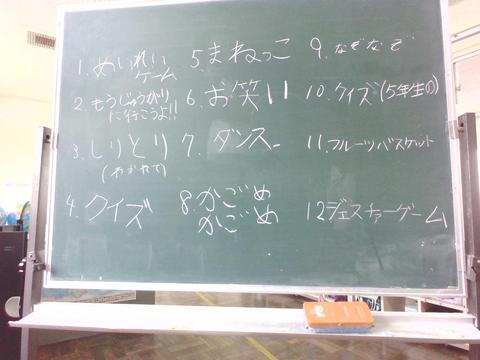 1. めいれい
ゲーム
2. もうじゅうがり
に行こうよ!!
3. しりとり
(わかれて)
4. クイズ
5 まねっこ
6. お笑い
7. ダンス
8. かごめ
かごめ
9. なぞなぞ
10. クイズ(5年生の)
11. フルーツバスケット
12 ジェスチャーゲーム